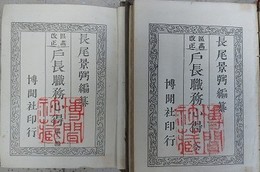 長尾景弼編纂
改正
戸長職務
博聞社印行
長尾景弼編纂
改正
戸長職務
博聞社印行